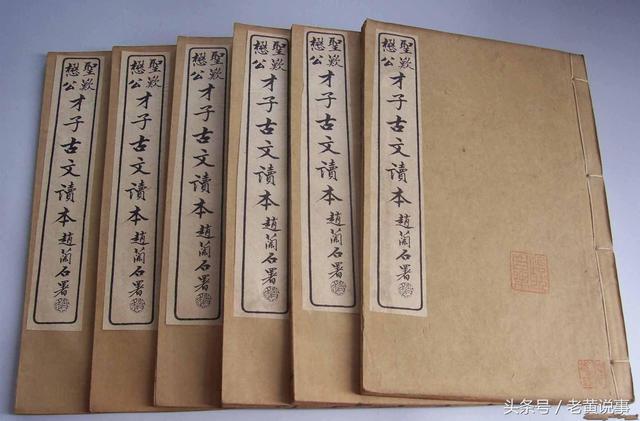 聖歎懋公才子古文讀本 趙蘭石署
聖歎懋公才子古文讀本 趙蘭石署
聖歎懋公才子古文讀本 趙蘭石署
聖歎懋公才子古文讀本 趙蘭石署
聖歎懋公才子古文讀本 趙蘭石署
聖歎懋公才子古文讀本 趙蘭石署
头条号／老黄说事